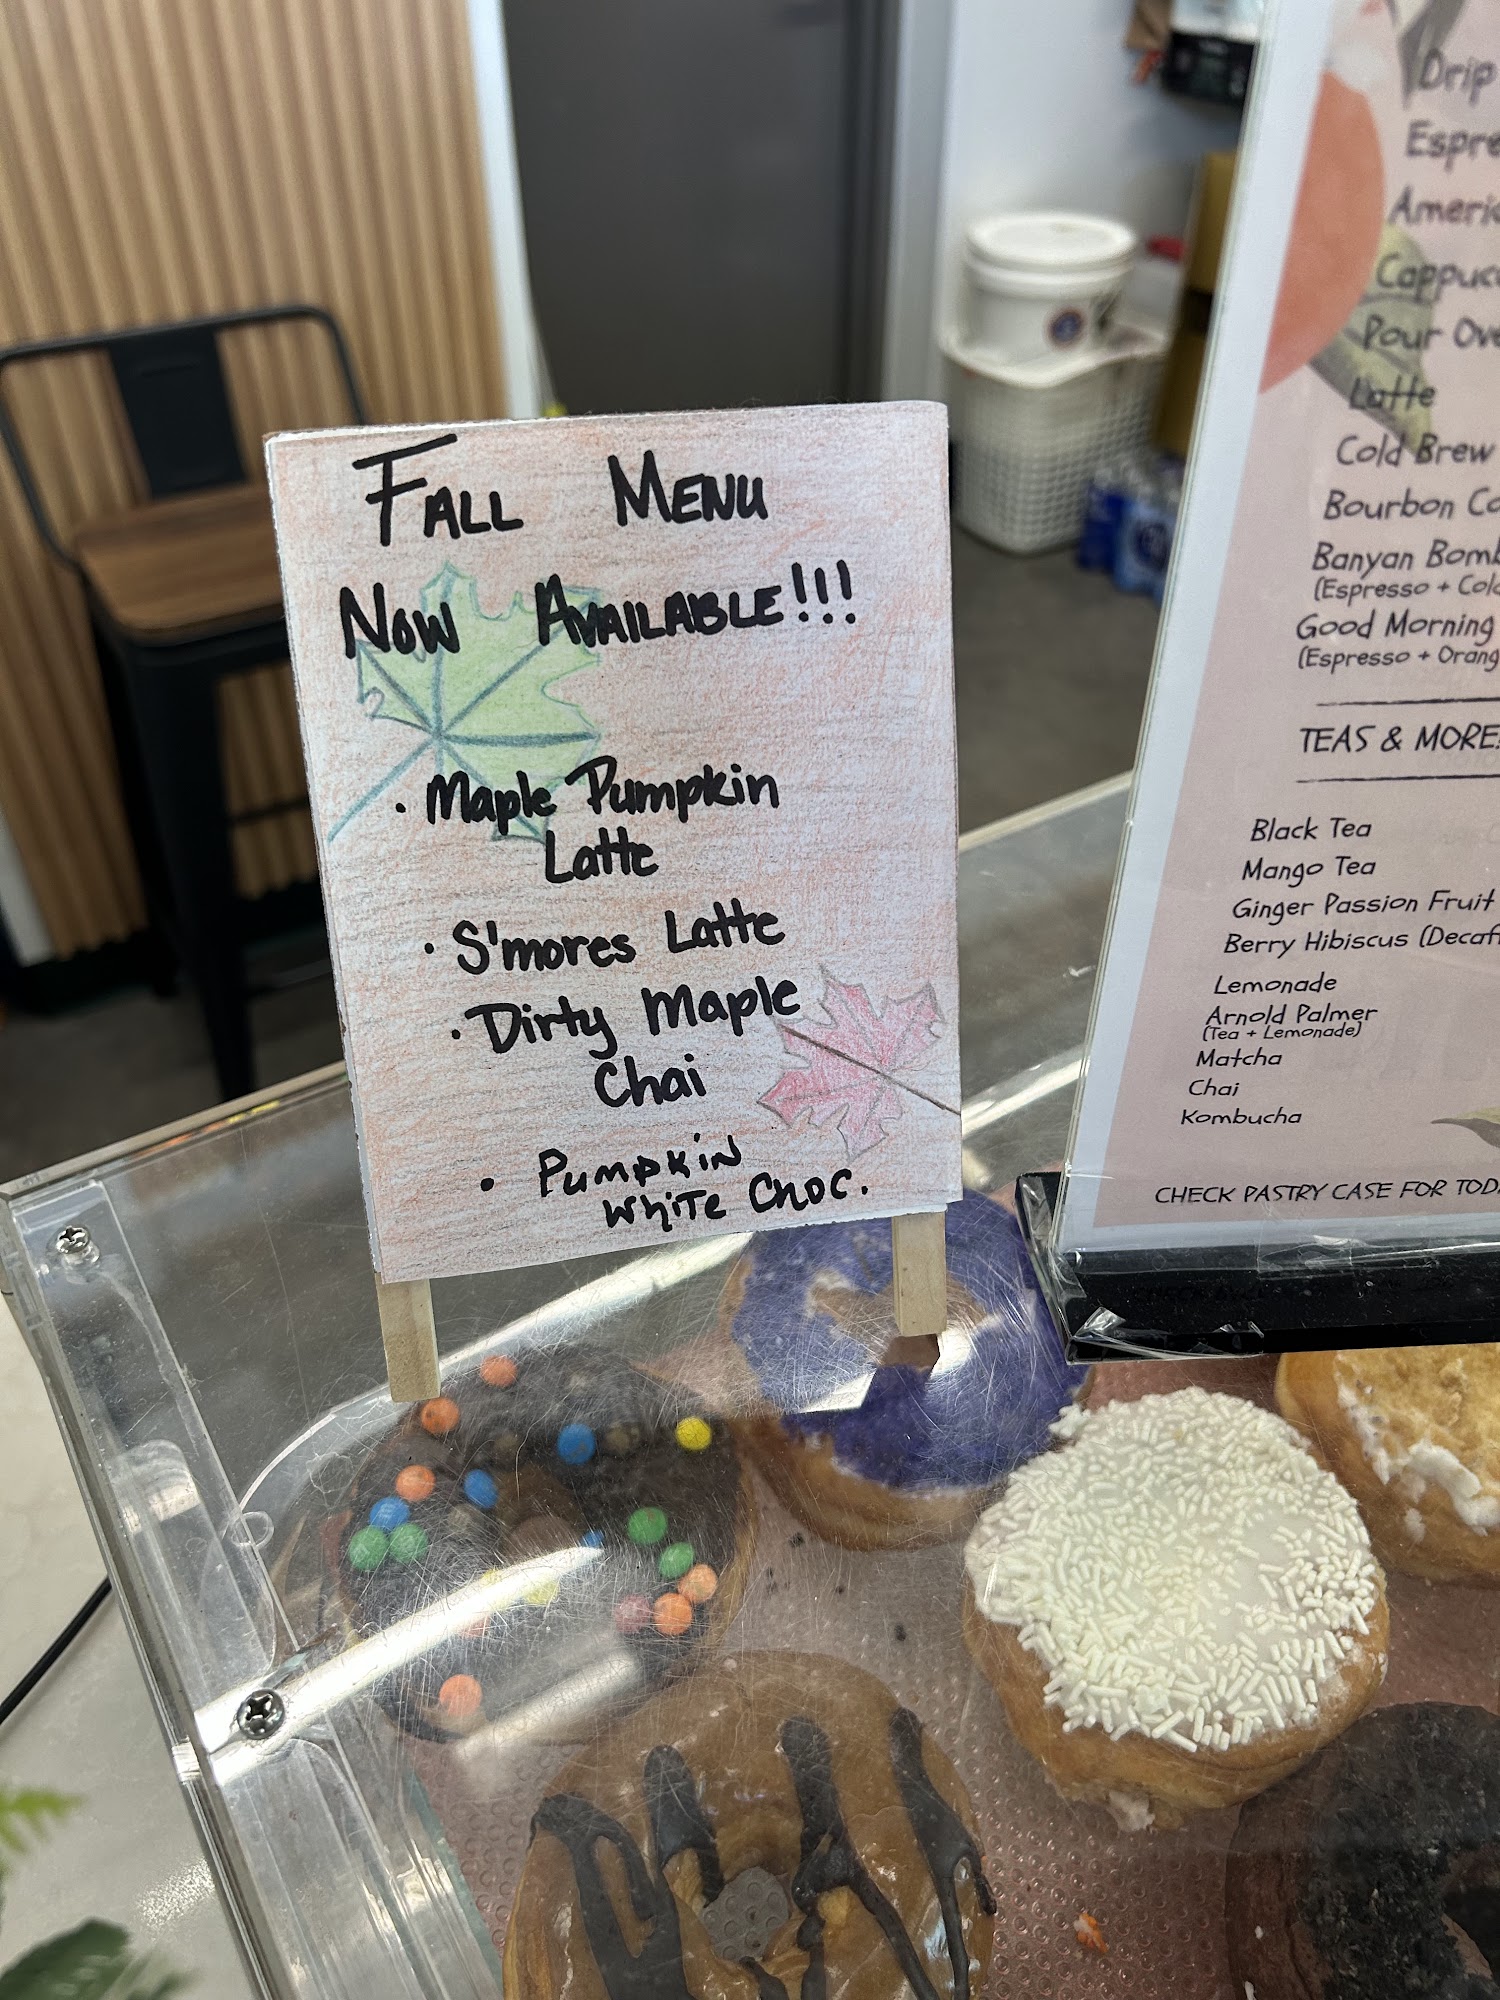 FALL MENU
NOW AVAILABLE!!!
• Maple Pumpkin
Latte
• S'mores Latte
• Dirty Maple
Chai
• PUMPKIN
WHITE CHOC.
Drip
Latte
Cold Brew
Bourbon
Banyan
(Espresso +
Good Morning
(Espresso +
TEAS & MORE
Black Tea
Mango Tea
Ginger Passion Fruit
Berry Hibiscus
Lemonade
Arnold Palmer
(Tea + Lemonade)
Matcha
Chai
Kombucha
CHECK PASTRY CASE FOR